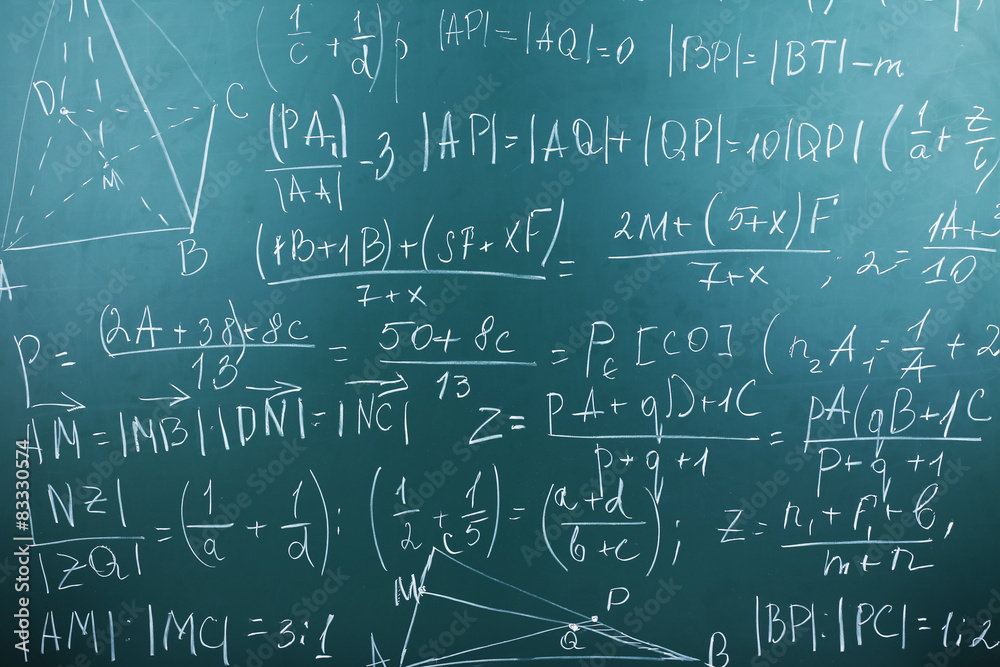 (1/c + 1/d) p |AP| = |AQ| = 0 |BP| = |BT| - m
D C
M
A B
(PA₁)/|AA| - 3 |AP| = |AQ| + |QP| = 10|QP| (1/a + z/
(1B+1B)+(SF+XF)/7+x = 2M+(5+x)F/7+x ; 2 = 1A+3/10
P = (2A+38)+8c/13 = 50+8c/13 = P_c [CO] (n₂A₁ = 1/A + 2
AM = |MB| : |DN| = |NC| Z = pA+qD+1C/p+q+1 = pA(qB+1C/p+q+1
NZ|/|ZQ| = (1/a + 1/d) : (1/2 + 1/5) = (a+d/b+c) ; Z = n₁+F₁+b/m+n ,
AM| : |MC| = 3:1 |BP| : |PC| = 1:2
C
M
P
Q
A B
Adobe Stock
Adobe Stock | #83330574